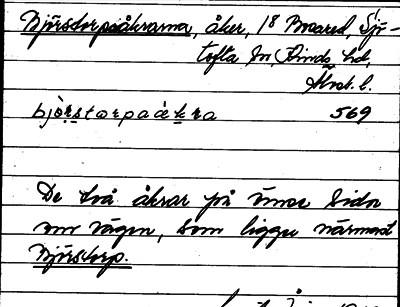 Björstorpaåkrarna, åker, 18 Boared, Sjö-
tofta sn, Kinds hd,
Älvsb. l.
björstorpaåkra 569
De två åkrar på ömse sidor
om vägen, som ligger närmast
Björstorp.